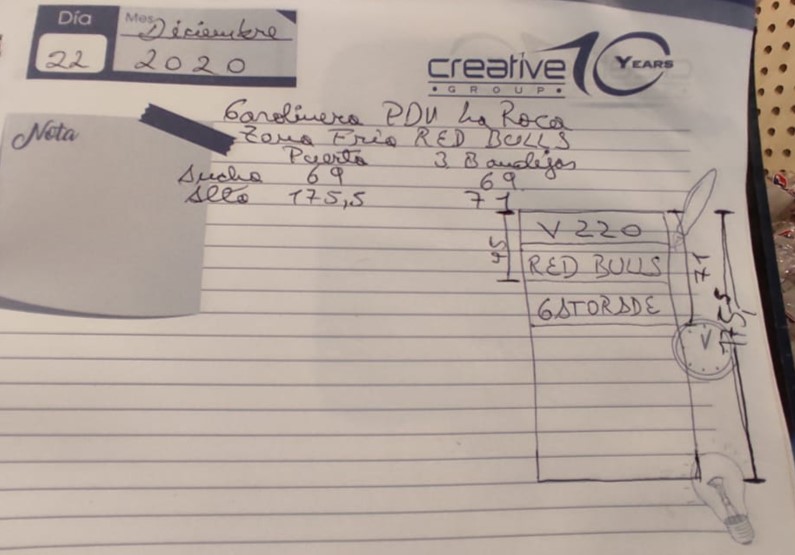 Día
Mes
Diciembre
22
2020
creative 10 YEARS
• GROUP •
Nota
Gasolinera PDV La Roca
Zona Fria RED BULLS
Puerta 3 Bandejas
Ancho 69 69
Alto 175,5 71
V220
RED BULLS
GATORADE
71
V